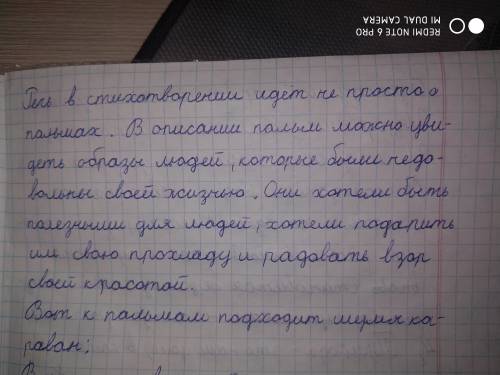 REDMI NOTE 6 PRO
MI DUAL CAMERA
Речь в стихотворении идёт не просто о
пальмах. В описании пальм можно уви-
деть образы людей, которые были недо-
вольны своей жизнью. Они хотели быть
полезными для людей, хотели подарить
им свою прохладу и радовать взор
своей красотой.
Вот к пальмам подходит шумя ка-
раван: